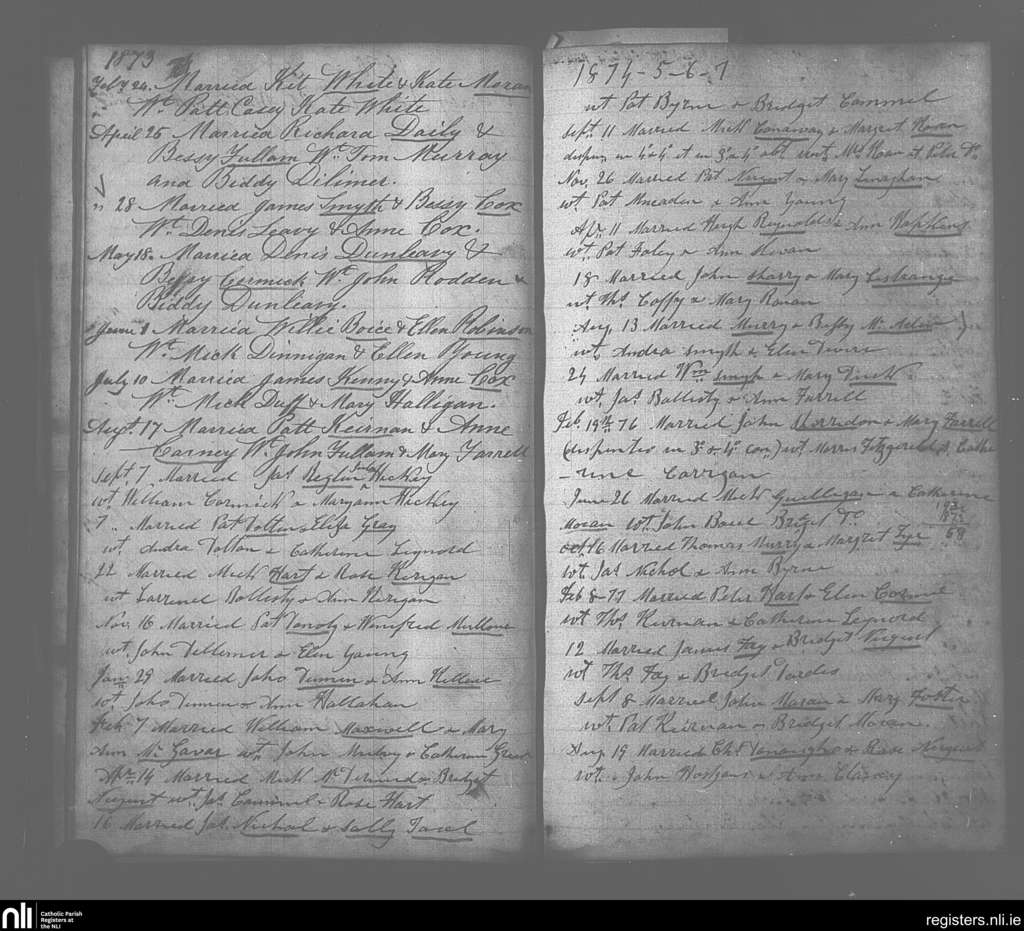 1873
Feby 24. Married Kit White & Kate Moran
" Wt. Patt Casey Kate White
April 25 Married Richard Daily &
Bessy Fullam Wt. Tom Murray
and Biddy Dilimer.
" 28 Married James Smyth & Bessy Cox
Wt. Denis Leavy & Anne Cox.
May 18. Married Denis Dunleavy &
Bessy Cormick Wt. John Rodden &
Biddy Dunleavy.
June 1 Married Willie Boice & Ellen Robinson
Wt. Mick Dinnigan & Ellen Young
July 10 Married James Kinny & Anne Cox
Wt. Mick Duff & Mary Halligan.
Augt. 17 Married Patt Keirnan & Anne
Carney Wt. John Fullam & Mary Farrell
Sept. 7 Married Jas. Reglin Julia Hickey
wt. William Cormick & Maryann Hickey
7 " Married Pat Dolton & Eliza Gray
wt. Andra Dolton & Catherine Legnold
22 Married Mick Hart & Rose Kerigan
wt Larrence Bollisty & Ann Kerigan
Nov. 16 Married Pat & Wenifred
wt. John Dellemer & Elen Young
Jan. 29 Married John Dunon & Ann
wt. John Dunon & Ann Hallahan
Feb. 7 Married William Maxwell & Mary
Ann Mc wt. John & Catherine
Apr. 14 Married Mick Mc Dermud & Bridget
Nugent wt. Jas. Cammel & Rose Hart
16 Married Jas. Nichol & Sally
1874-5-6-7
wt Pat Byrne & Bridget Cammel
Sept. 11 Married Mick Conaway & Margret Noan
Nov. 26 Married Pat Nugent & Mary Lenaghan
wt. Pat & Ann Young
Apr. 11 Married Hugh Reynolds & Ann Hopkins
wt. Pat Foley & Ann
18 Married John Sharry & Mary Lestrange
wt. Ths. Coffy & Mary Ronan
Aug. 13 Married Murry & Bessy Mc
wt. Andra Smyth & Elen
24 Married Wm Smyth & Mary
wt. Jas. Bollisty & Ann Farrell
Feb. 19th 76 Married John Sherridon & Mary Farrell
(dispenses in 3° & 4° con) wt. Morris Fitzgerald & Cathe
-rine Corrigan
June 26 Married Mick & Catherine
Moran wt. John Bowe Bridget Do.
Oct. 16 Married Thomas Murry & Margret
wt. Jas. Nichol & Ann Byrne
Feb 8 77 Married Peter Hart & Elen
wt Ths. Kiernan & Catherine Legnord
12 Married James Fay & Bridget Nugent
wt Ths. Fay & Bridget
Sept 8 Married John Moran & Mary
wt. Pat Keirnan & Bridget Moran.
Aug 19 Married Chs. & Rose Nugent
wt. John & Ann
nli
Catholic Parish
Registers at
the NLI
registers.nli.ie